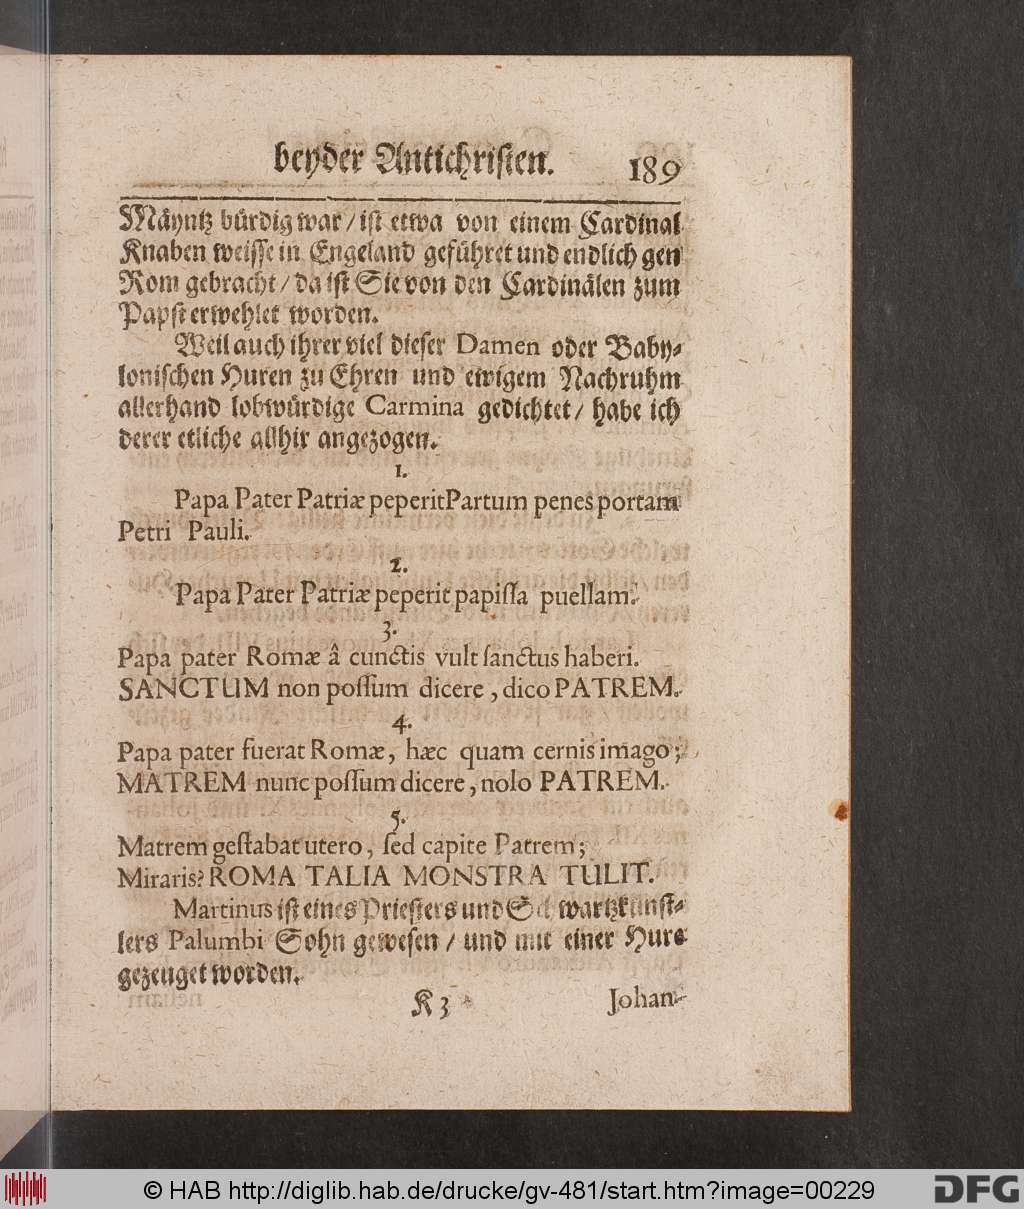 beyder Antichristen. 189
Mäyntz bürdig war / ist etwa von einem Cardinal
Knaben weisse in Engeland geführet und endlich gen
Rom gebracht / da ist Sie von den Cardinälen zum
Papst erwehlet worden.
Weil auch ihrer viel dieser Damen oder Baby-
lonischen Huren zu Ehren und ewigem Nachruhm
allerhand lobwürdige Carmina gedichtet / habe ich
derer etliche allhir angezogen.
1.
Papa Pater Patriæ peperit Partum penes portam
Petri Pauli.
2.
Papa Pater Patriæ peperit papiſſa puellam.
3.
Papa pater Romæ â cunctis vult ſanctus haberi.
SANCTUM non poſſum dicere, dico PATREM.
4.
Papa pater fuerat Romæ, hæc quam cernis imago;
MATREM nunc poſſum dicere, nolo PATREM.
5.
Matrem geſtabat utero, ſed capite Patrem;
Miraris? ROMA TALIA MONSTRA TULIT.
Martinus ist eines Priesters und Schwartzkünst-
lers Palumbi Sohn gewesen / und mit einer Hure
gezeuget worden.
K 3 Johan-
© HAB http://diglib.hab.de/drucke/gv-481/start.htm?image=00229 DFG